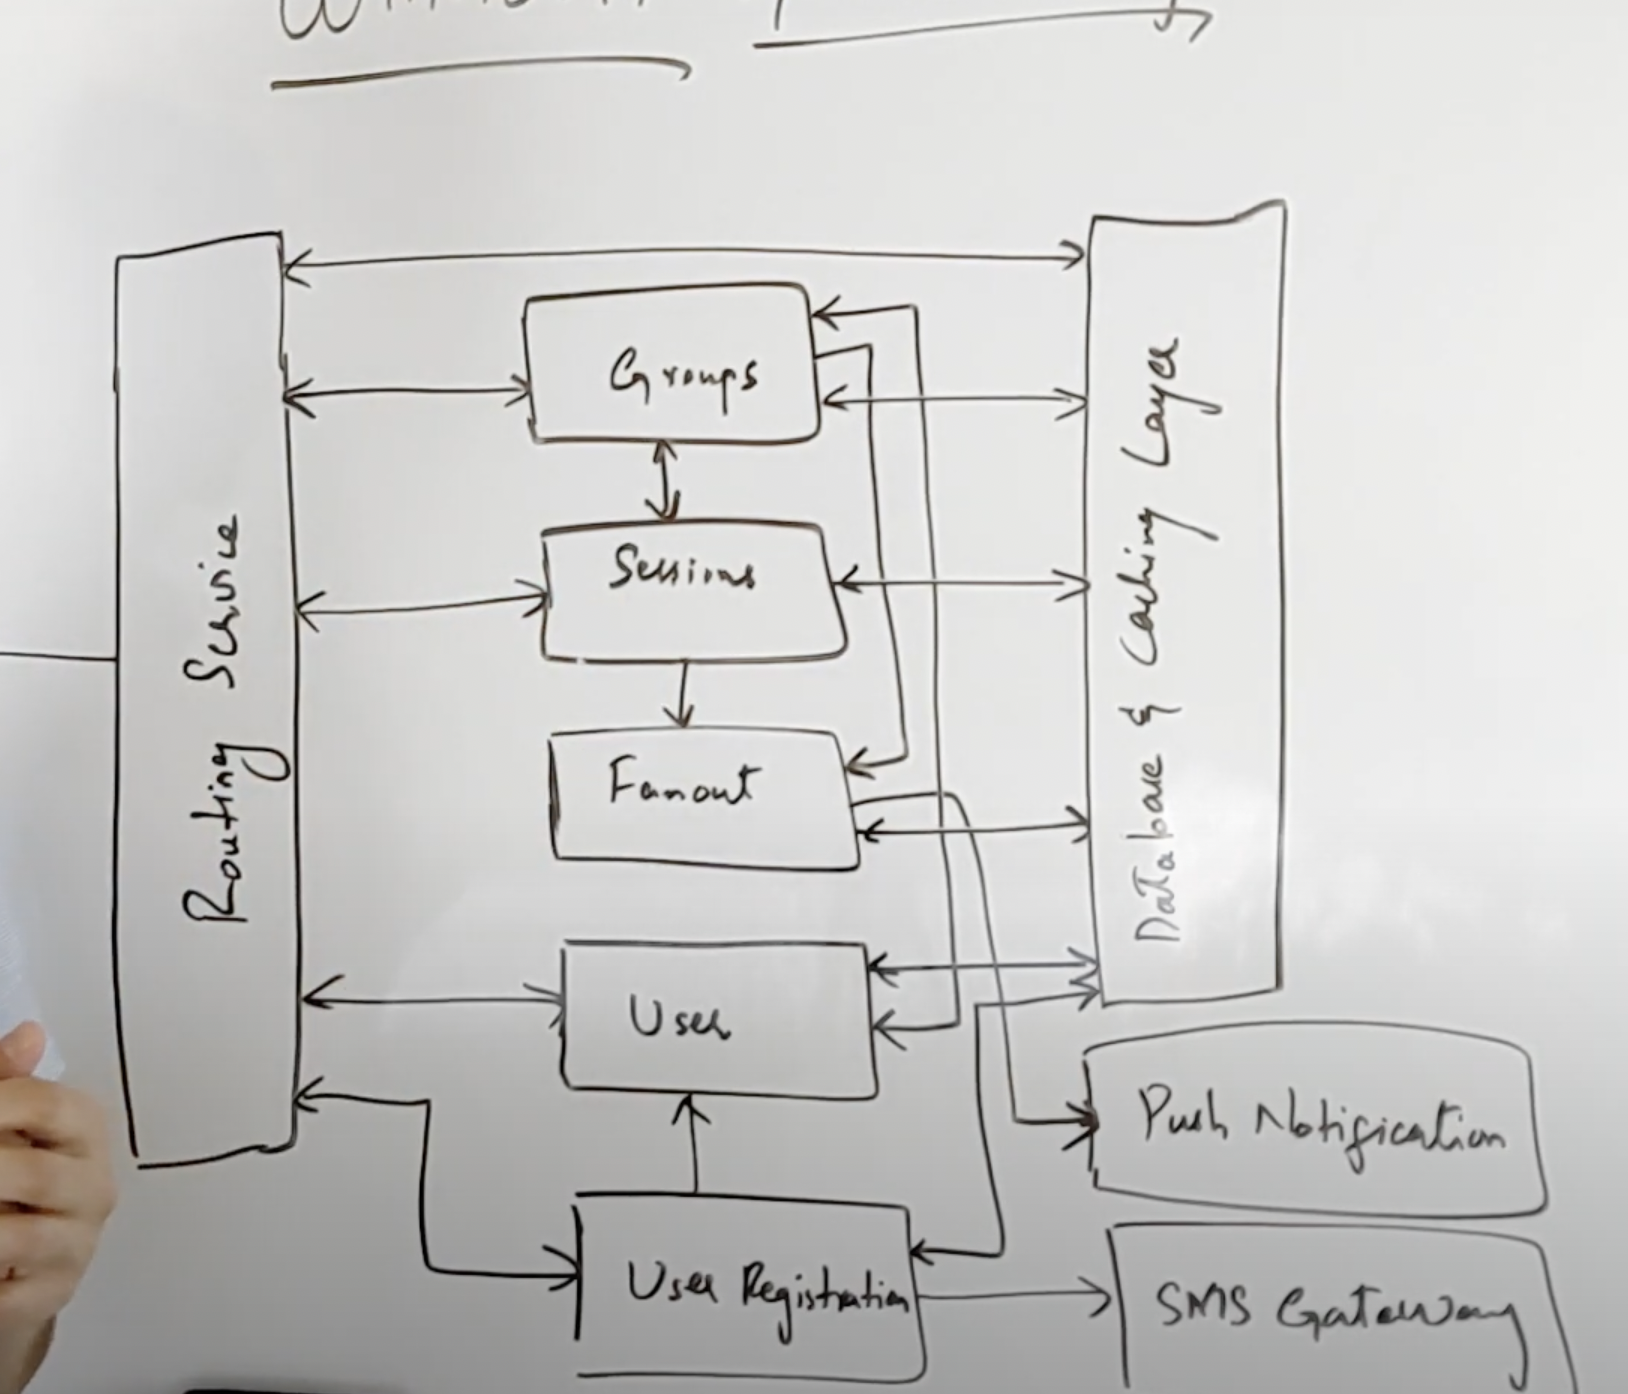 Routing Service
Groups
Sessions
Fanout
User
User Registration
Database & Caching Layer
Push Notification
SMS Gateway